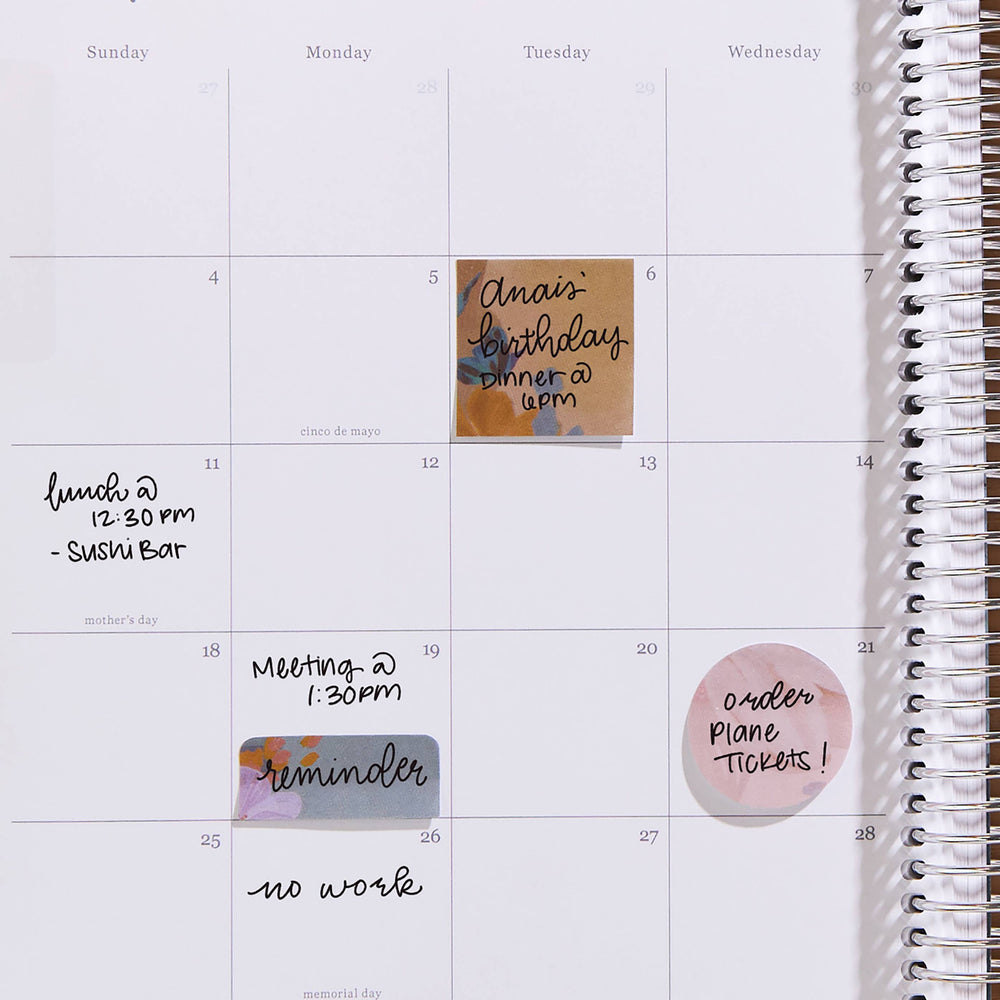 Sunday Monday Tuesday Wednesday
27 28 29 30
4 5 6 7
Anais'
birthday
Dinner @
6pm
cinco de mayo
11 12 13 14
lunch @
12:30 PM
- Sushi Bar
mother's day
18 19 20 21
Meeting @
1:30PM
reminder
order
Plane
Tickets!
25 26 27 28
no work
memorial day